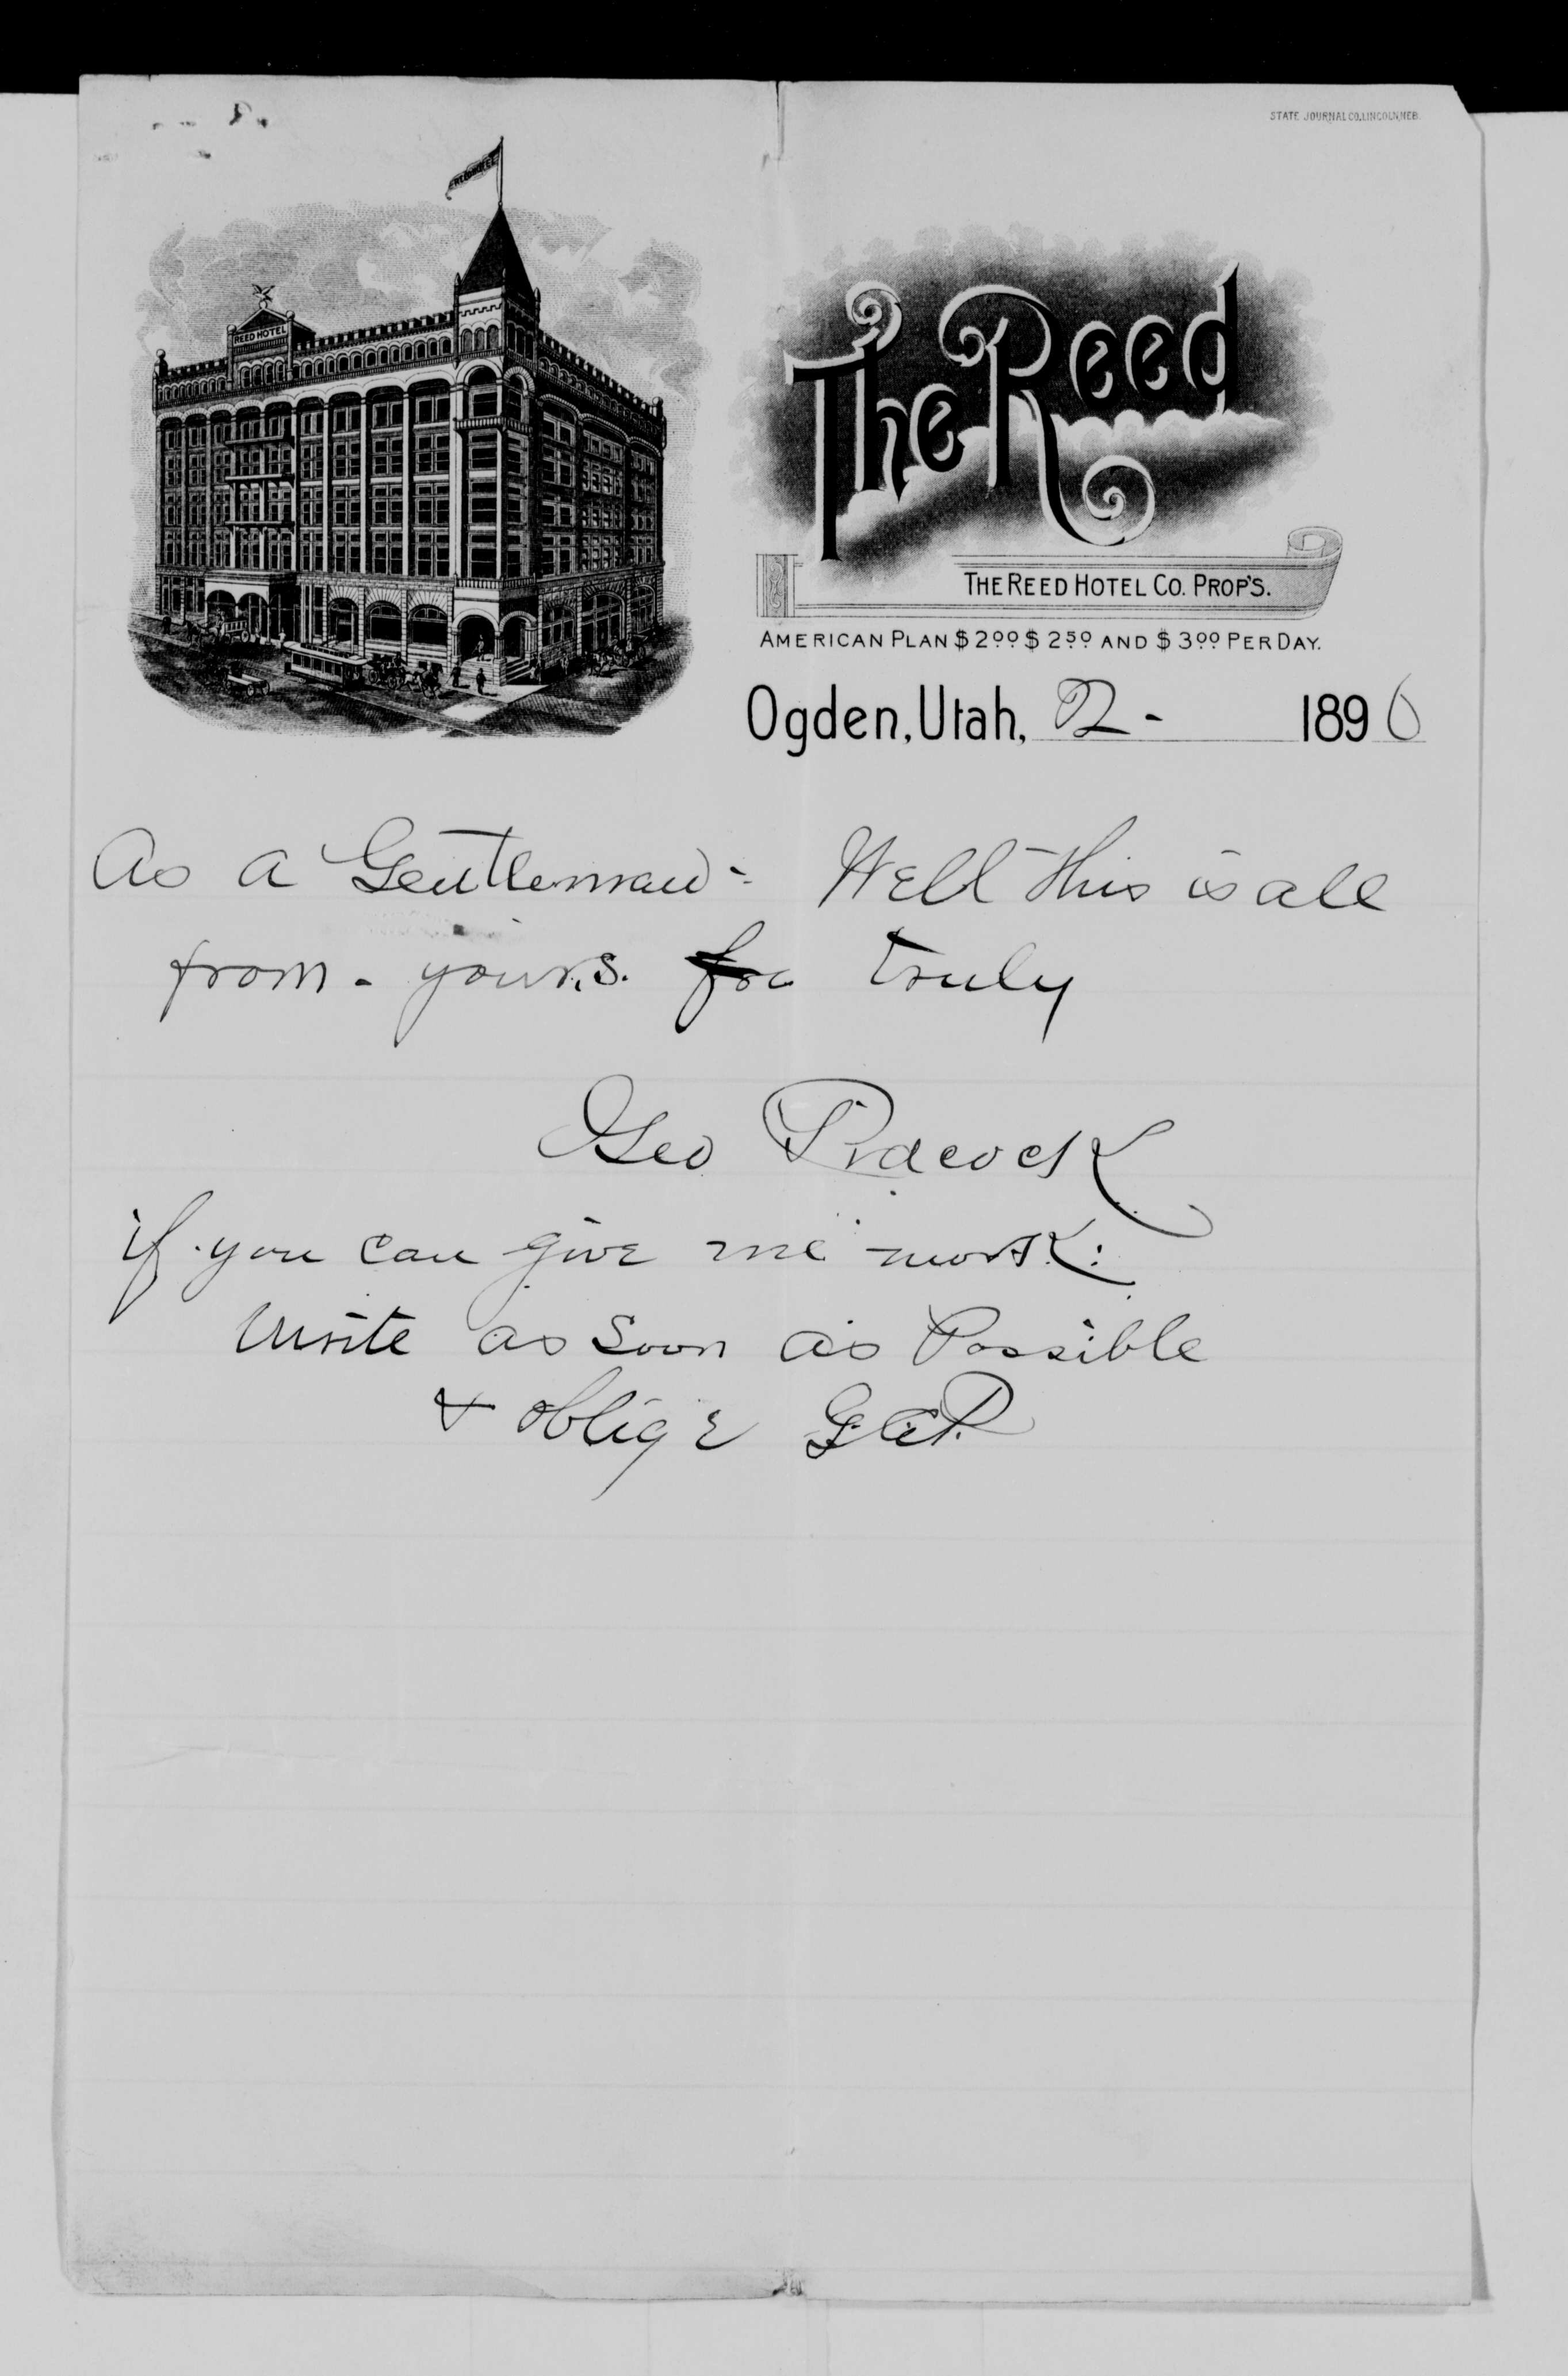 STATE JOURNAL CO., LINCOLN, NEB.
REED HOTEL
The Reed
THE REED HOTEL CO. PROP'S.
AMERICAN PLAN $2.00 $2.50 AND $3.00 PER DAY.
Ogden, Utah, 2 - 1896
As a Gentleman - Well this is all
from - yours. truly
Geo Peacock
if you can give me work:
Write as soon as Possible
& oblige G.P.